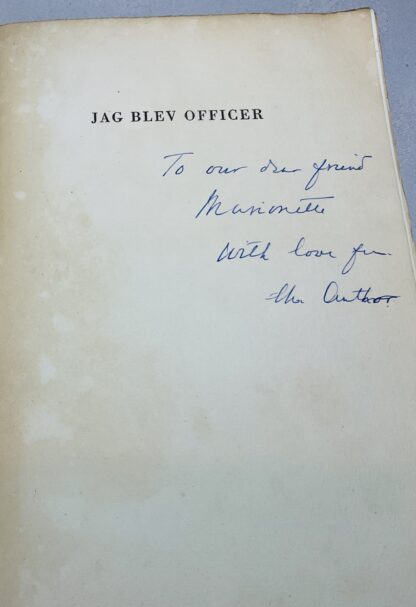 JAG BLEV OFFICER
To our dear friend
Marionette
With love fr.
the Author.